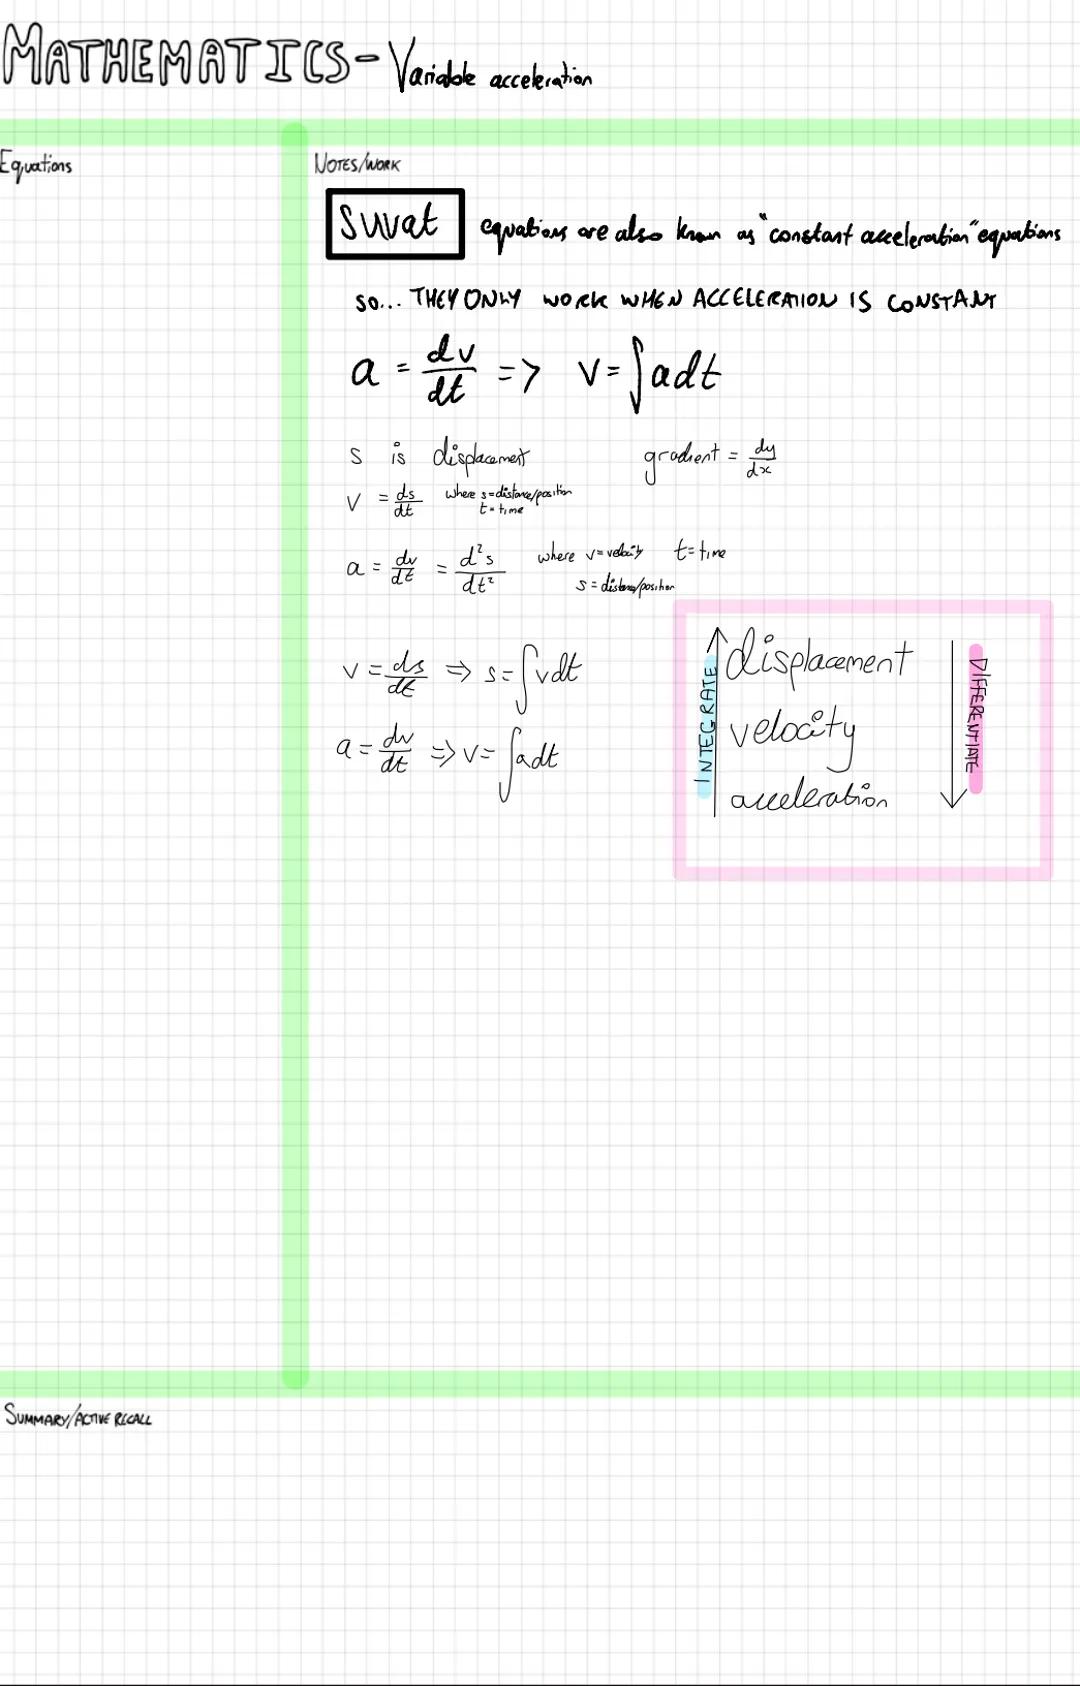 MATHEMATICS - Variable acceleration
Equations
NOTES/WORK
suvat equations are also known as "constant acceleration" equations
SO... THEY ONLY WORK WHEN ACCELERATION IS CONSTANT
a = dv/dt => v = ∫adt
s is displacement gradient = dy/dx
v = ds/dt where s = distance/position
t = time
a = dv/dt = d²s/dt² where v = velocity t = time
s = distance/position
v = ds/dt => s = ∫vdt
a = dv/dt => v = ∫adt
INTEGRATE
displacement
velocity
acceleration
DIFFERENTIATE
SUMMARY/ACTIVE RECALL